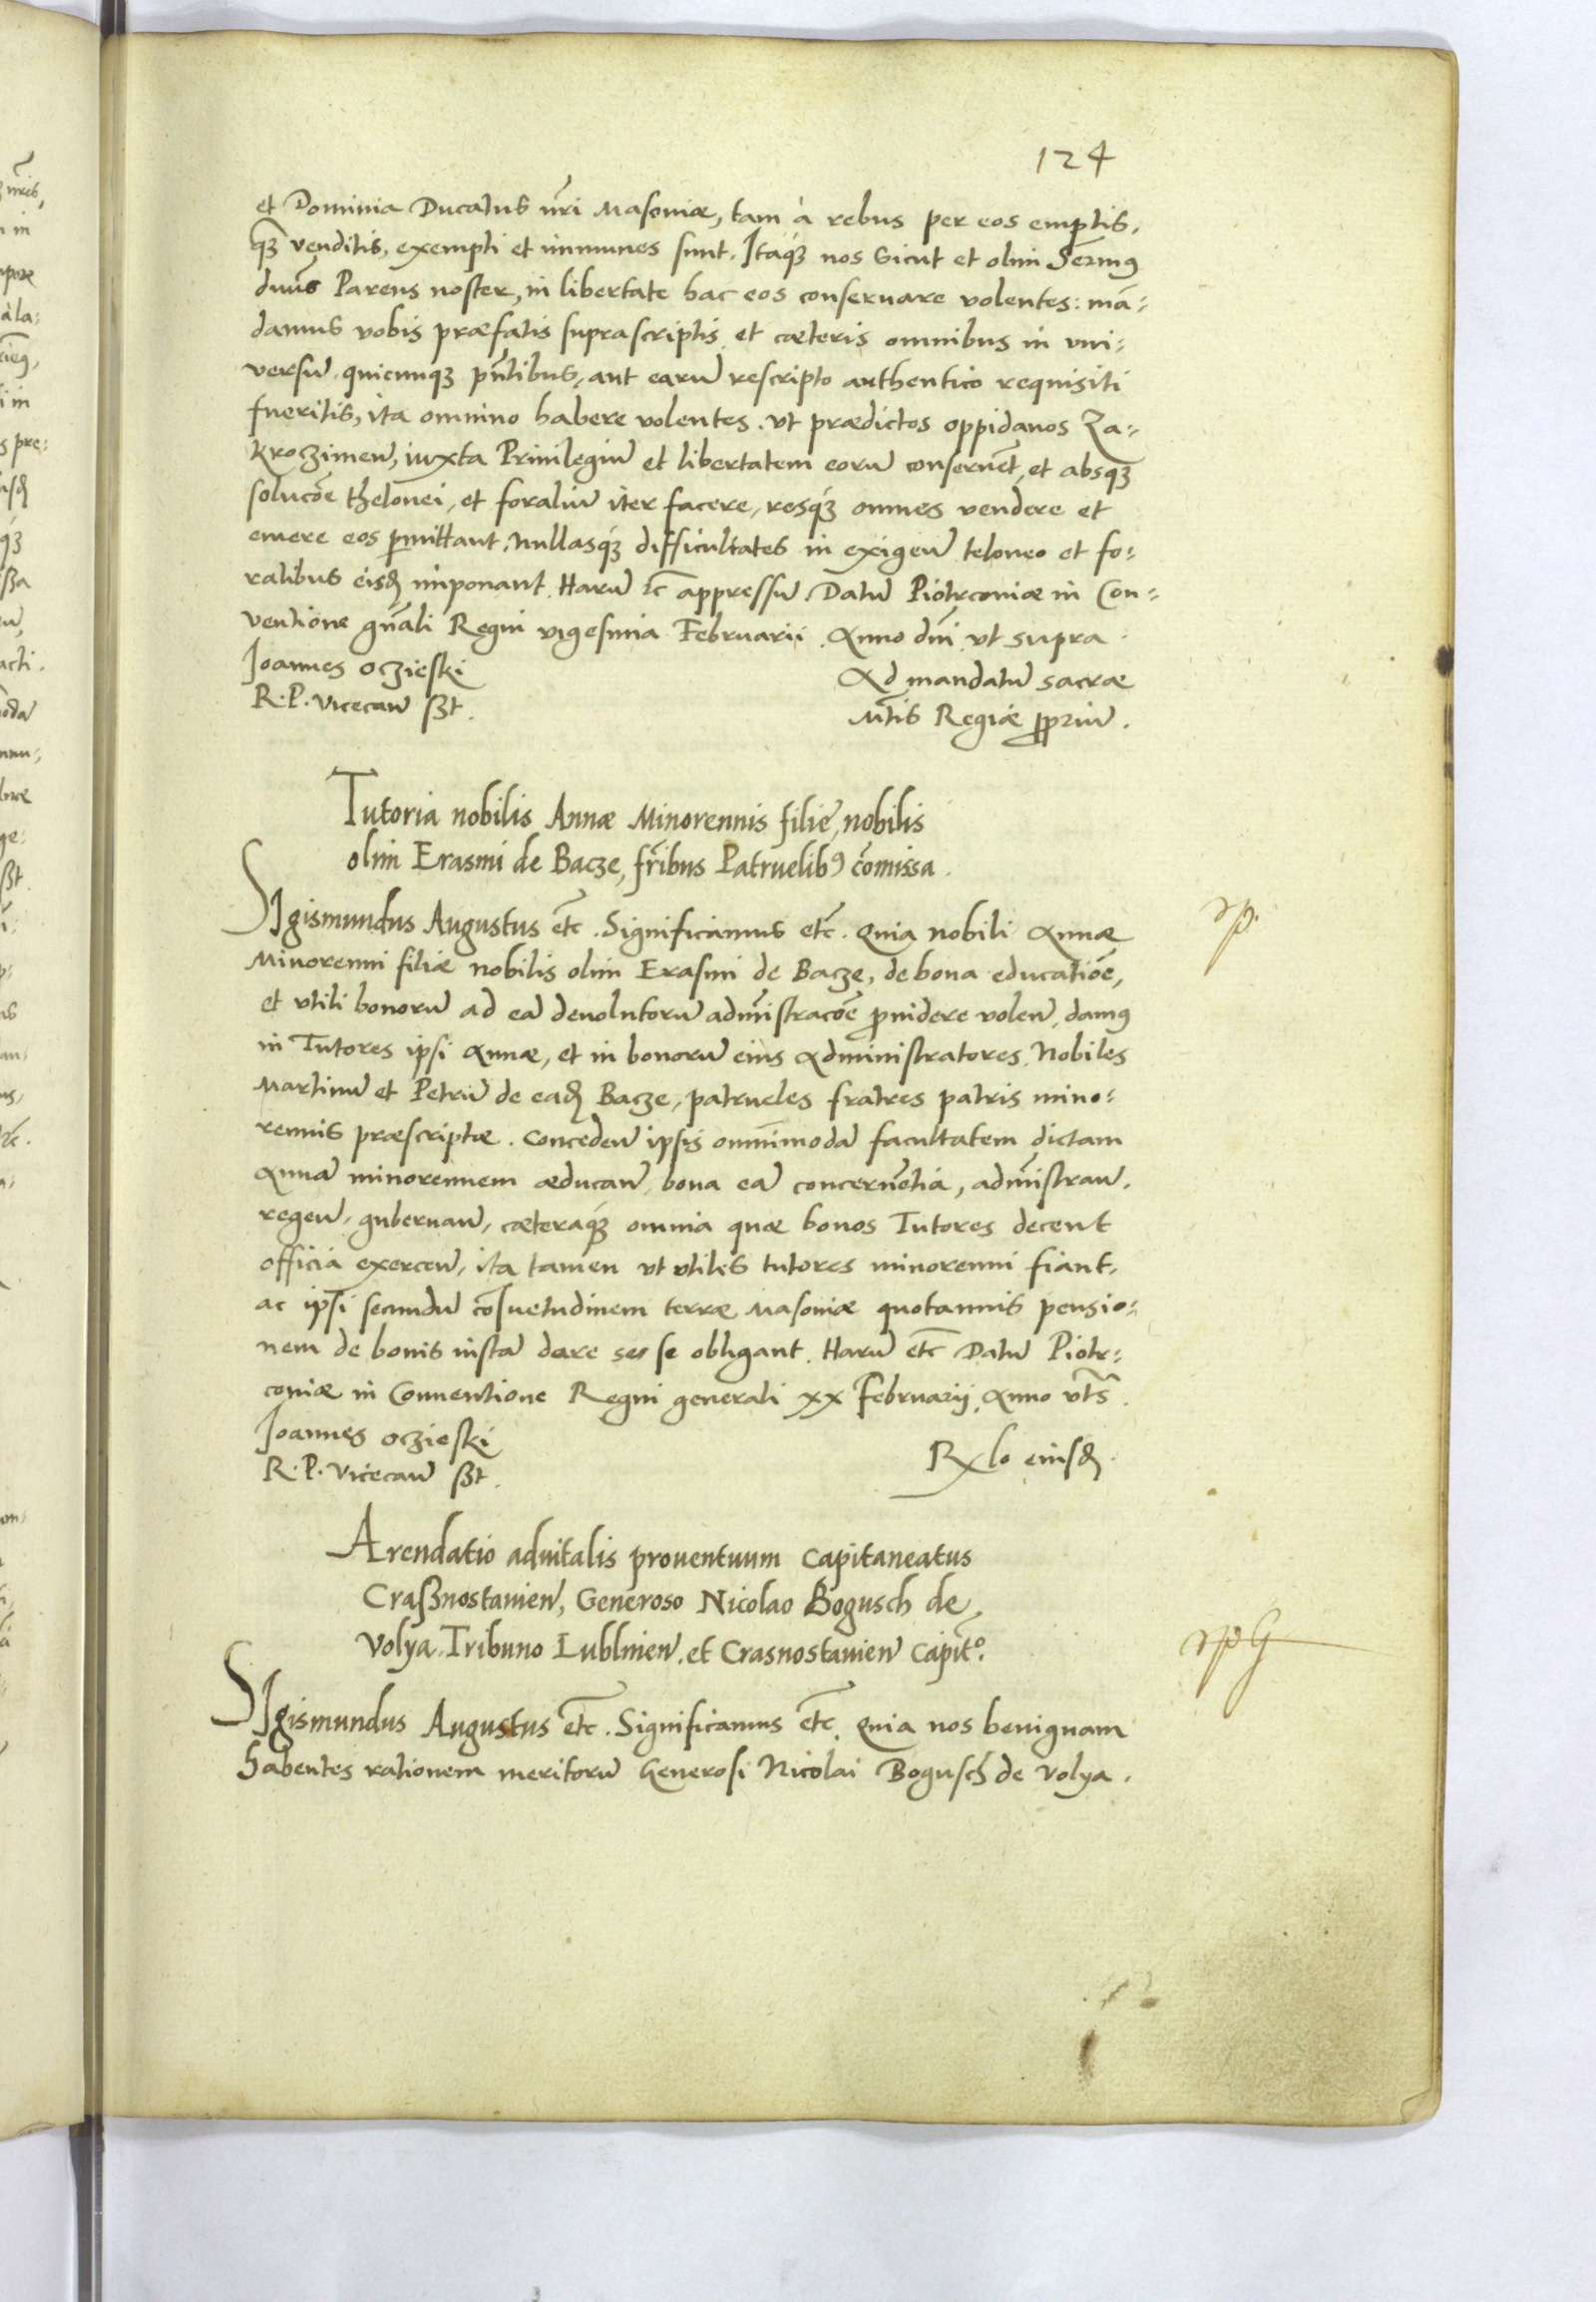 124
et Dominia Ducatus nr̃i Masoniæ, tam à rebus per eos emptis,
q̃ȝ venditis, exempti et immunes sunt. Itaqȝ nos sicut et olim Sermꝰ
diuus Parens noster, in libertate hac eos conseruare volentes: mã-
damus vobis præfatis suprascriptis et cæteris omnibus in vni-
versũ quicunqȝ pñtibus, aut earũ rescripto authentico requisiti
fueritis, ita omnino habere volentes. vt prædictos oppidanos Za-
kroczimeñ, iuxta Priuilegiũ et libertatem eorũ conseruẽt, et absqȝ
solucõe thelonei, et foraliũ iter facere, resqȝ omnes vendere et
emere eos pmittant, Nullasqȝ difficultates in exigeñ teloneo et fo-
ralibus eisđ imponant. Harũ etc̃ appressũ. Datũ Piotrconiæ in Con-
uentione gñali Regni vigesima Februarii. Anno dñi vt supra.
Ioannes Oczieski
R. P. Vicecañ sßt.
Ad mandatũ sacræ
Mtis Regiæ ppriũ.
Tutoria nobilis Annæ Minorennis filie, nobilis
olim Erasmi de Bacze, fr̃ibus Patruelibꝰ cõmissa.
SIgismundus Augustus etc̃. Significamus etc̃. Quia nobili Annæ
Minorenni filiæ nobilis olim Erasmi de Bacze, de bona educatiõe,
et vtili bonorũ ad eã deuolutorũ admĩstracõe prouidere voleñ, damꝰ
in Tutores ipsi Annæ, et in bonorũ eius Administratores, Nobiles
Martinũ et Petrũ de eađ Bacze, patrueles fratres patris mino-
rennis præscriptæ. Concedeñ ipsis omnimodã facultatem dictam
Annã minorennem æducañ, bona eã concernẽtia, admĩstrañ,
regeñ, gubernañ, cæteraqȝ omnia quæ bonos Tutores decent
officia exerceñ, ita tamen vt vtiles tutores minorenni fiant,
ac ipsi secundũ cõsuetudinem terræ Masoniæ quotannis pensio-
nem de bonis iustã dare se se obligant. Harũ etc̃ Datũ Piotr-
coniæ in Conuentione Regni generali xx Februarij, Anno vts̃.
Ioannes Oczieski
R. P. Vicecañ sßt.
Rxlo eiusđ.
Arendatio aduitalis prouentuum Capitaneatus
Craßnostauieñ, Generoso Nicolao Bogusch de
Volya. Tribuno Lublinen. et Crasnostauieñ Capitº.
SIgismundus Augustus etc̃. Significamus etc̃. Quia nos benignam
habentes rationem meritorũ Generosi Nicolai Bogusch de Volya.